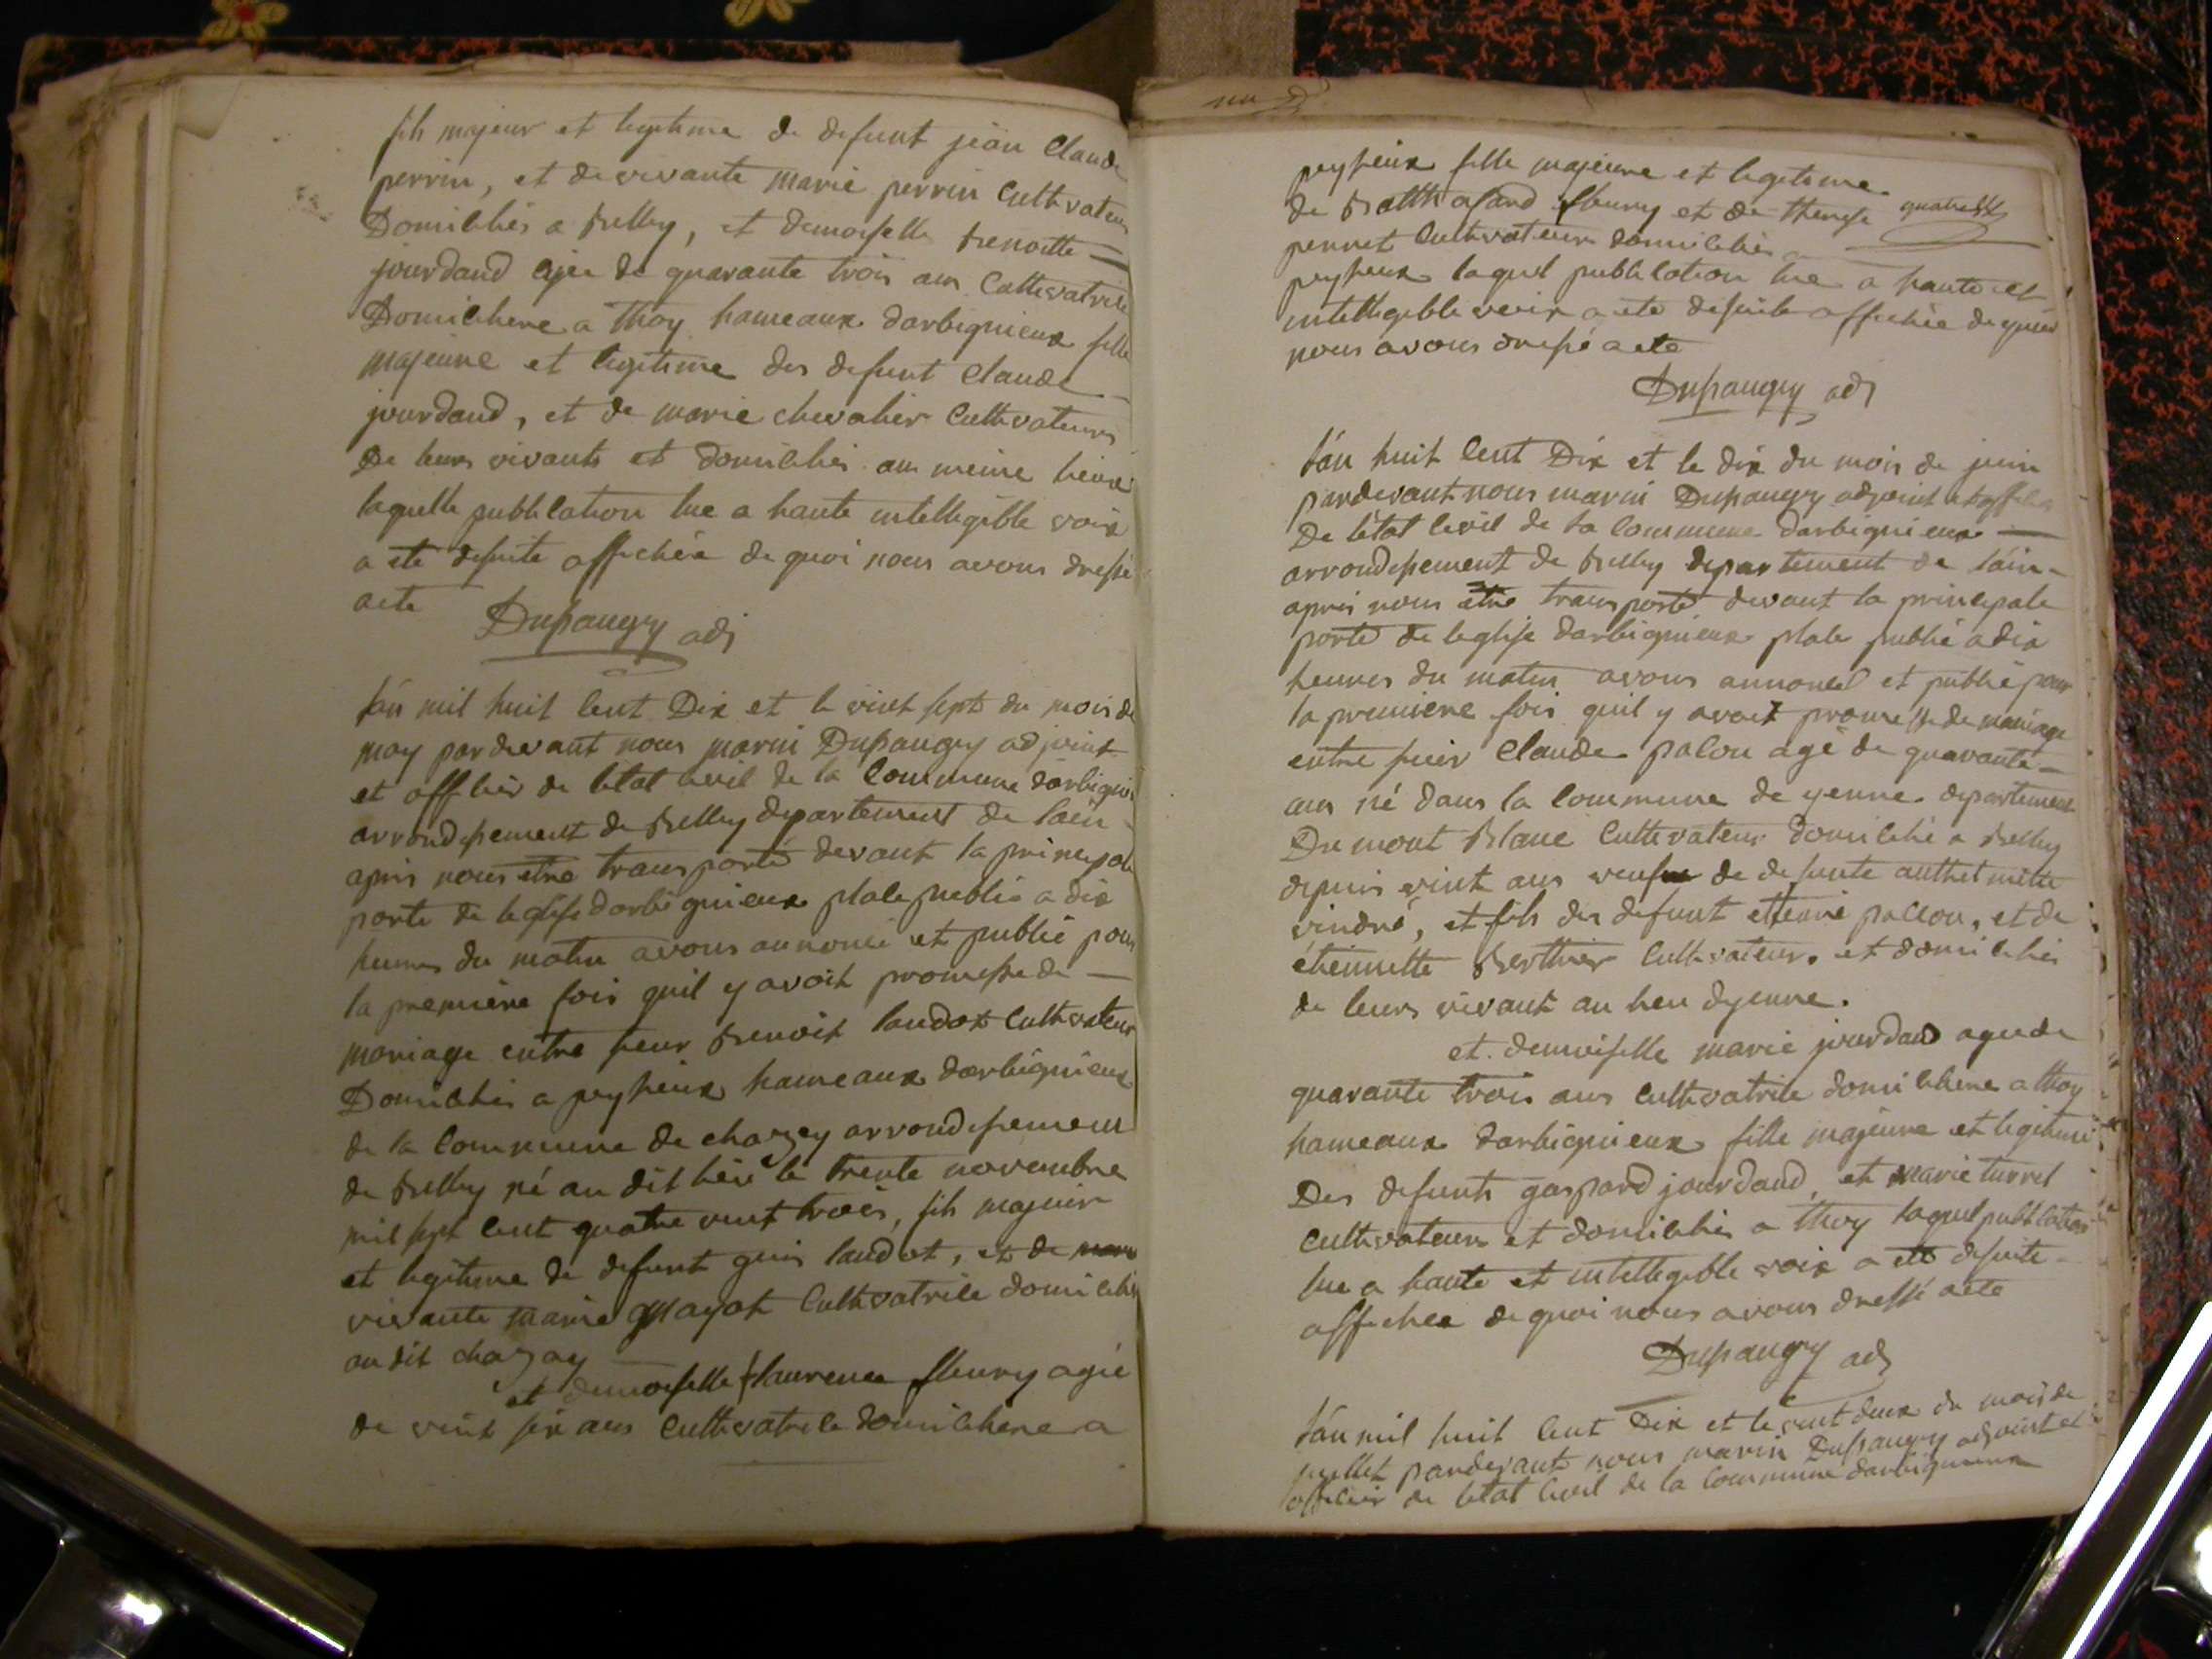 fils majeur et legitime de defunt jean Claude
perrin, et de vivante marie perrin Cultivateur
Domiciliés a Belley, et demoiselle Benoitte
jourdand agée de quarante trois ans Cultivatrice
Domiciliere a thoy hameaux darbignieux fille
majeure et legitime des defunt Claude
jourdand, et de marie chevalier Cultivateurs
De leurs vivants et domiciliés au meme lieux
laquelle publication lue a haute intellegible voix
a ete desuite affichéé de quoi nous avons dressé
acte Dupaugey adj
lán mil huit Cent Dix et le vint sept du mois de
may pardevant nous marin Dupaugey adjoint
et officier de letat civil de la Commune darbigni
arrondissement de Belley departement de lain
apres nous etre transporté devant la principale
porte de leglise darbignieux place public a dix
heures du matin avons annoncé et publié pour
la premiere fois quil y avoit promesse de
mariage entre sieur Benoit landot Cultivateur
Domicilié a peyzieux hameaux darbignieux
de la Commune de chazey arrondissement
de Belley né au dit lieu le trente novembre
mil sept cent quatre vint trois, fils majeur
et legitime de defunt guis landot, et de
vivante marie mayot Cultivatrice domicilié
au dit chazay
et demoiselle laurence fleury agée
de vint six ans Cultivatrice domiciliere a
peyzieux fille majeure et legitime
de Balthasard fleury et de therese
perret Cultivateurs domiciliés a
peyzieux laquel publication lue a haute et
intellegible voix a ete desuite affichée de quoi
nous avons dressé acte
Dupaugey adj
lán huit Cent Dix et le dix du mois de juin
pardevant nous marin Dupaugey adjoint et officier
De létat Civil de la Commune darbignieux
arrondissement de Belley departement de láin
apres nous etre transporté devant la principale
porte de leglise darbignieux place public a dix
heures du matin avons annoncé et publié pour
la premiere fois quil y avoit promesse de mariage
entre sieur Claude palon agé de quarante
ans né dans la Commune de yenne departement
Du mont Blanc Cultivateur domicilié a Belley
depuis vint ans veuf de defunte
vindré, et fils des defunt etienne pallon, et de
étiennette Berthier Cultivateurs et domiciliés
de leurs vivant au lieu dyenne.
et demoiselle marie jourdand agee de
quarante trois ans Cultivatrice domiciliere a thoy
hameaux darbignieux fille majeure et legitime
Des defunts gaspard jourdand et marie turrel
Cultivateurs et domiciliés a thoy laquel publication
lue a haute et intellegible voix a ete desuite
affichee de quoi nous avons dressé acte
Dupaugey adj
lán mil huit Cent Dix et le vint deux du mois de
juillet pardevant nous marin Dupaugey adjoint et
officier de letat Civil de la Commune darbignieux